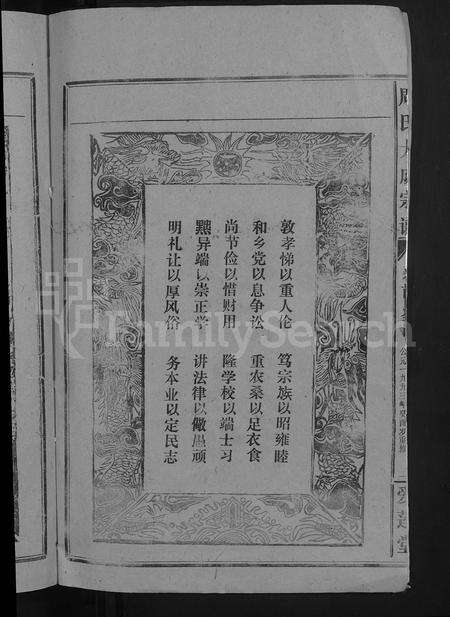 敦孝悌以重人伦 笃宗族以昭雍睦
和乡党以息争讼 重农桑以足衣食
尚节俭以惜财用 隆学校以端士习
黜异端以崇正学 讲法律以儆愚顽
明礼让以厚风俗 务本业以定民志
周氏大成宗谱
爱莲堂
FamilySearch